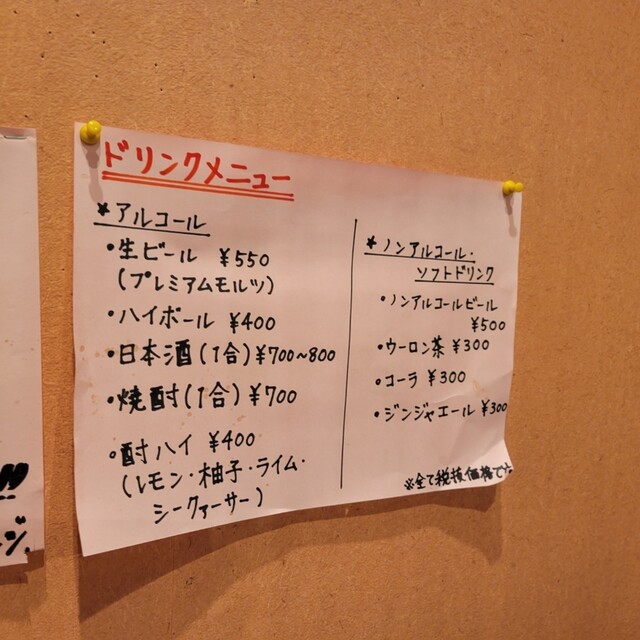 ドリンクメニュー
*アルコール
・生ビール ¥550
(プレミアムモルツ)
・ハイボール ¥400
・日本酒(1合)¥700~800
・焼酎(1合)¥700
・酎ハイ ¥400
(レモン・柚子・ライム・
シークァーサー)
*ノンアルコール・
ソフトドリンク
・ノンアルコールビール
¥500
・ウーロン茶 ¥300
・コーラ ¥300
・ジンジャエール ¥300
※全て税抜価格です